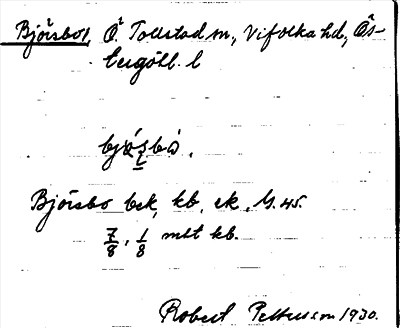 Björsbo, Ö. Tollstad sn, Vifolka hd, Ös-
tergötl. l
Björsbo bsk, kb, ek, G. 45.
7/8, 1/8 mlt kb.
Robert Pettersson 1930.